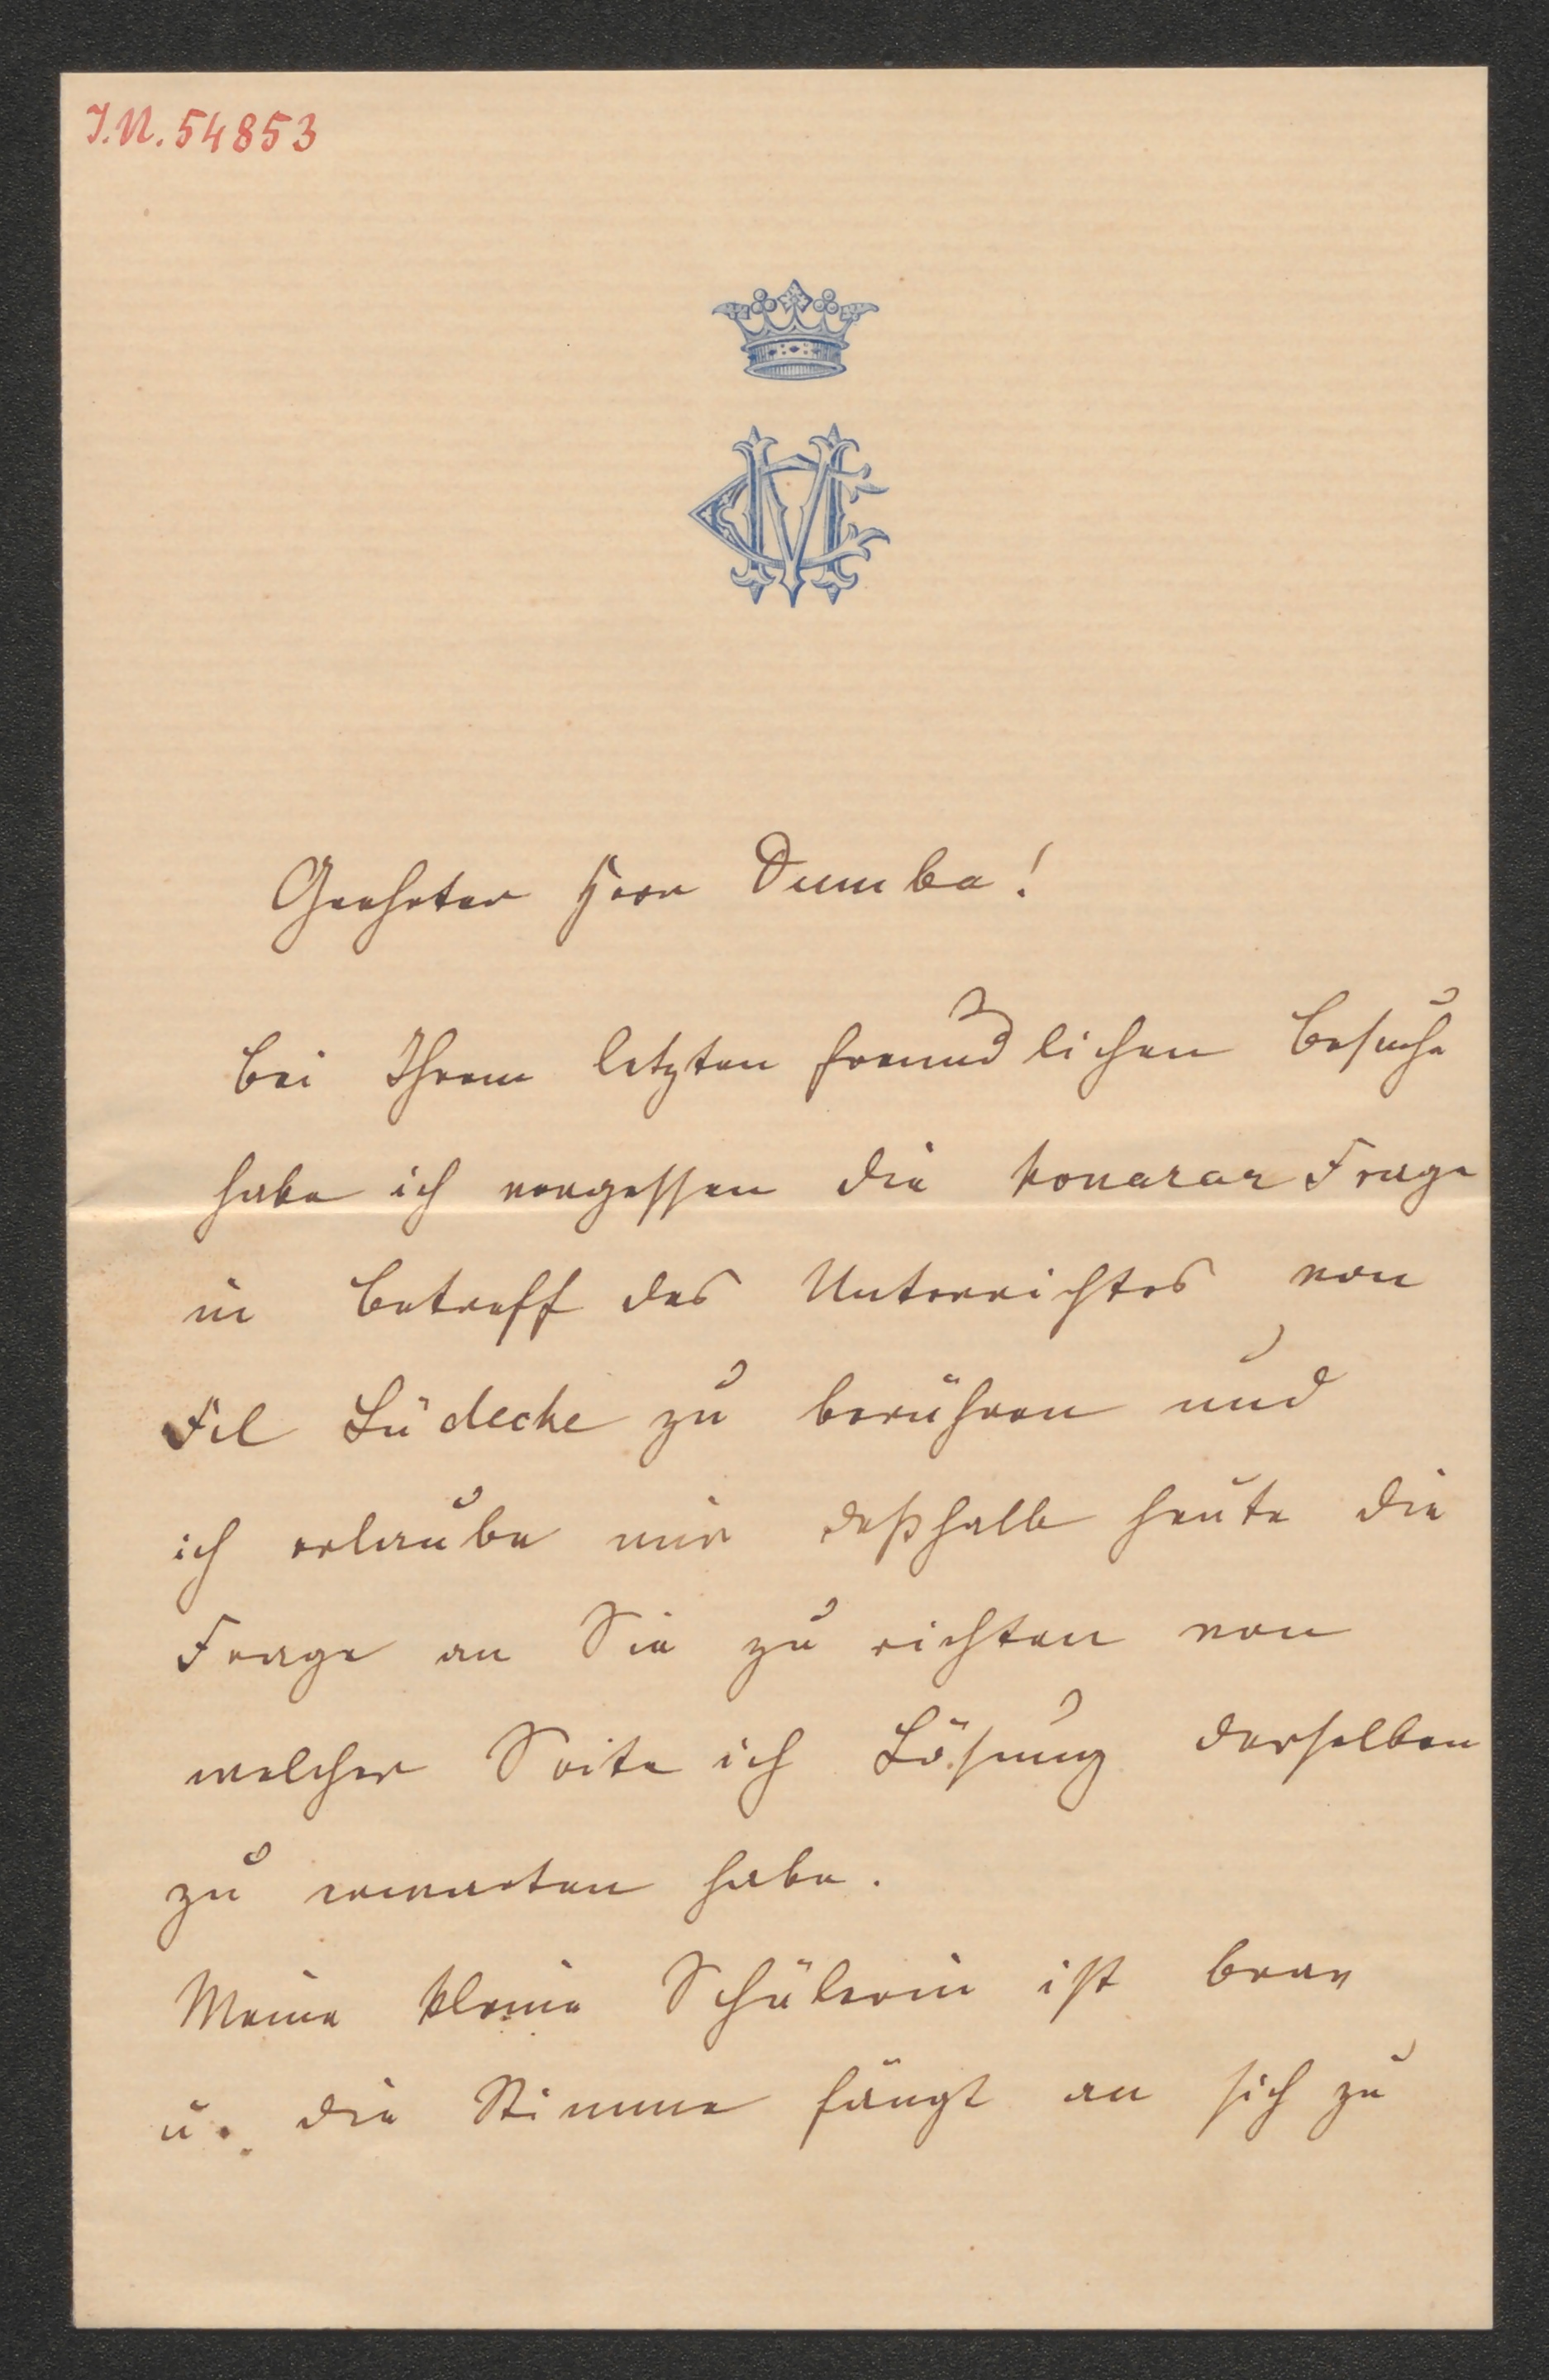 I.N. 54853
MC
Geehrter Herr Dumba!
Bei Ihrem letzten freundlichen Besuche
habe ich vergessen die honorar Frage
in Betreff des Unterrichtes von
Frl Lüdecke zu berühren und
ich erlaube mir deßhalb heute die
Frage an Sie zu richten von
welcher Seite ich Lösung derselben
zu erwarten habe.
Meine kleine Schülerin ist brav
u. die Stimme fängt an sich zu